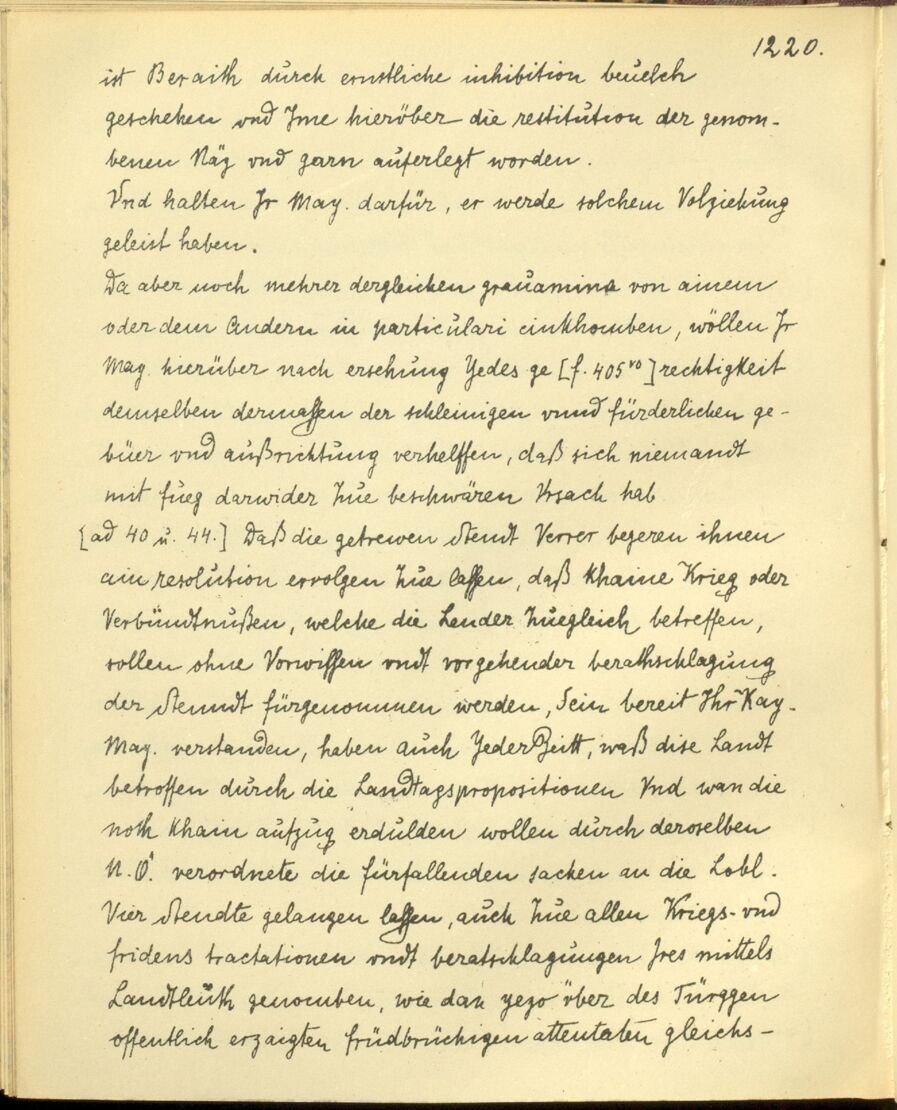 1220.
ist Beraith durch ernstliche inhibition beuelch
geschehen vnd Jme hierüber die restitution der genom-
benen Räz vnd garn auferlegt worden.
Vnd halten Jr May. darfür, er werde solchem Volziehung
geleist haben.
Da aber noch mehrer dergleichen grauamina von ainem
oder dem Andern in particulari einkhomben, wöllen Jr
May. hierüber nach ersehung Yedes ge [f. 405 vo] rechtigkeit
demselben dermassen der schleinigen vnnd fürderlichen ge-
büer vnd außrichtung verhelffen, daß sich niemandt
mit fueg darwider zue beschwären Vrsach hab
[ad 40 u. 44.] Daß die getrewen stendt Verrer begeren ihnen
ain resolution ervolgen zue lassen, daß khaine Krieg oder
Verbündtnußen, welche die Lender zuegleich betreffen,
sollen ohne Vorwissen vndt vorgehender berathschlagung
der stenndt fürgenommen werden, Sein bereit Ihr Kay.
May. verstanden, haben auch Yeder Zeitt, waß dise Landt
betroffen durch die Landtagspropositionen Vnd wan die
noth khain aufzug erdulden wollen durch deroselben
N.Ö. verordnete die fürfallenden sachen an die Lobl.
Vier stendte gelangen lassen, auch zue allen Kriegs- vnd
fridens tractationen vndt beratschlagungen Jres mittels
Landtleüth genomben, wie dan yezo über des Türggen
offentlich erzaigten fridbrüchigen attentaten gleichs-